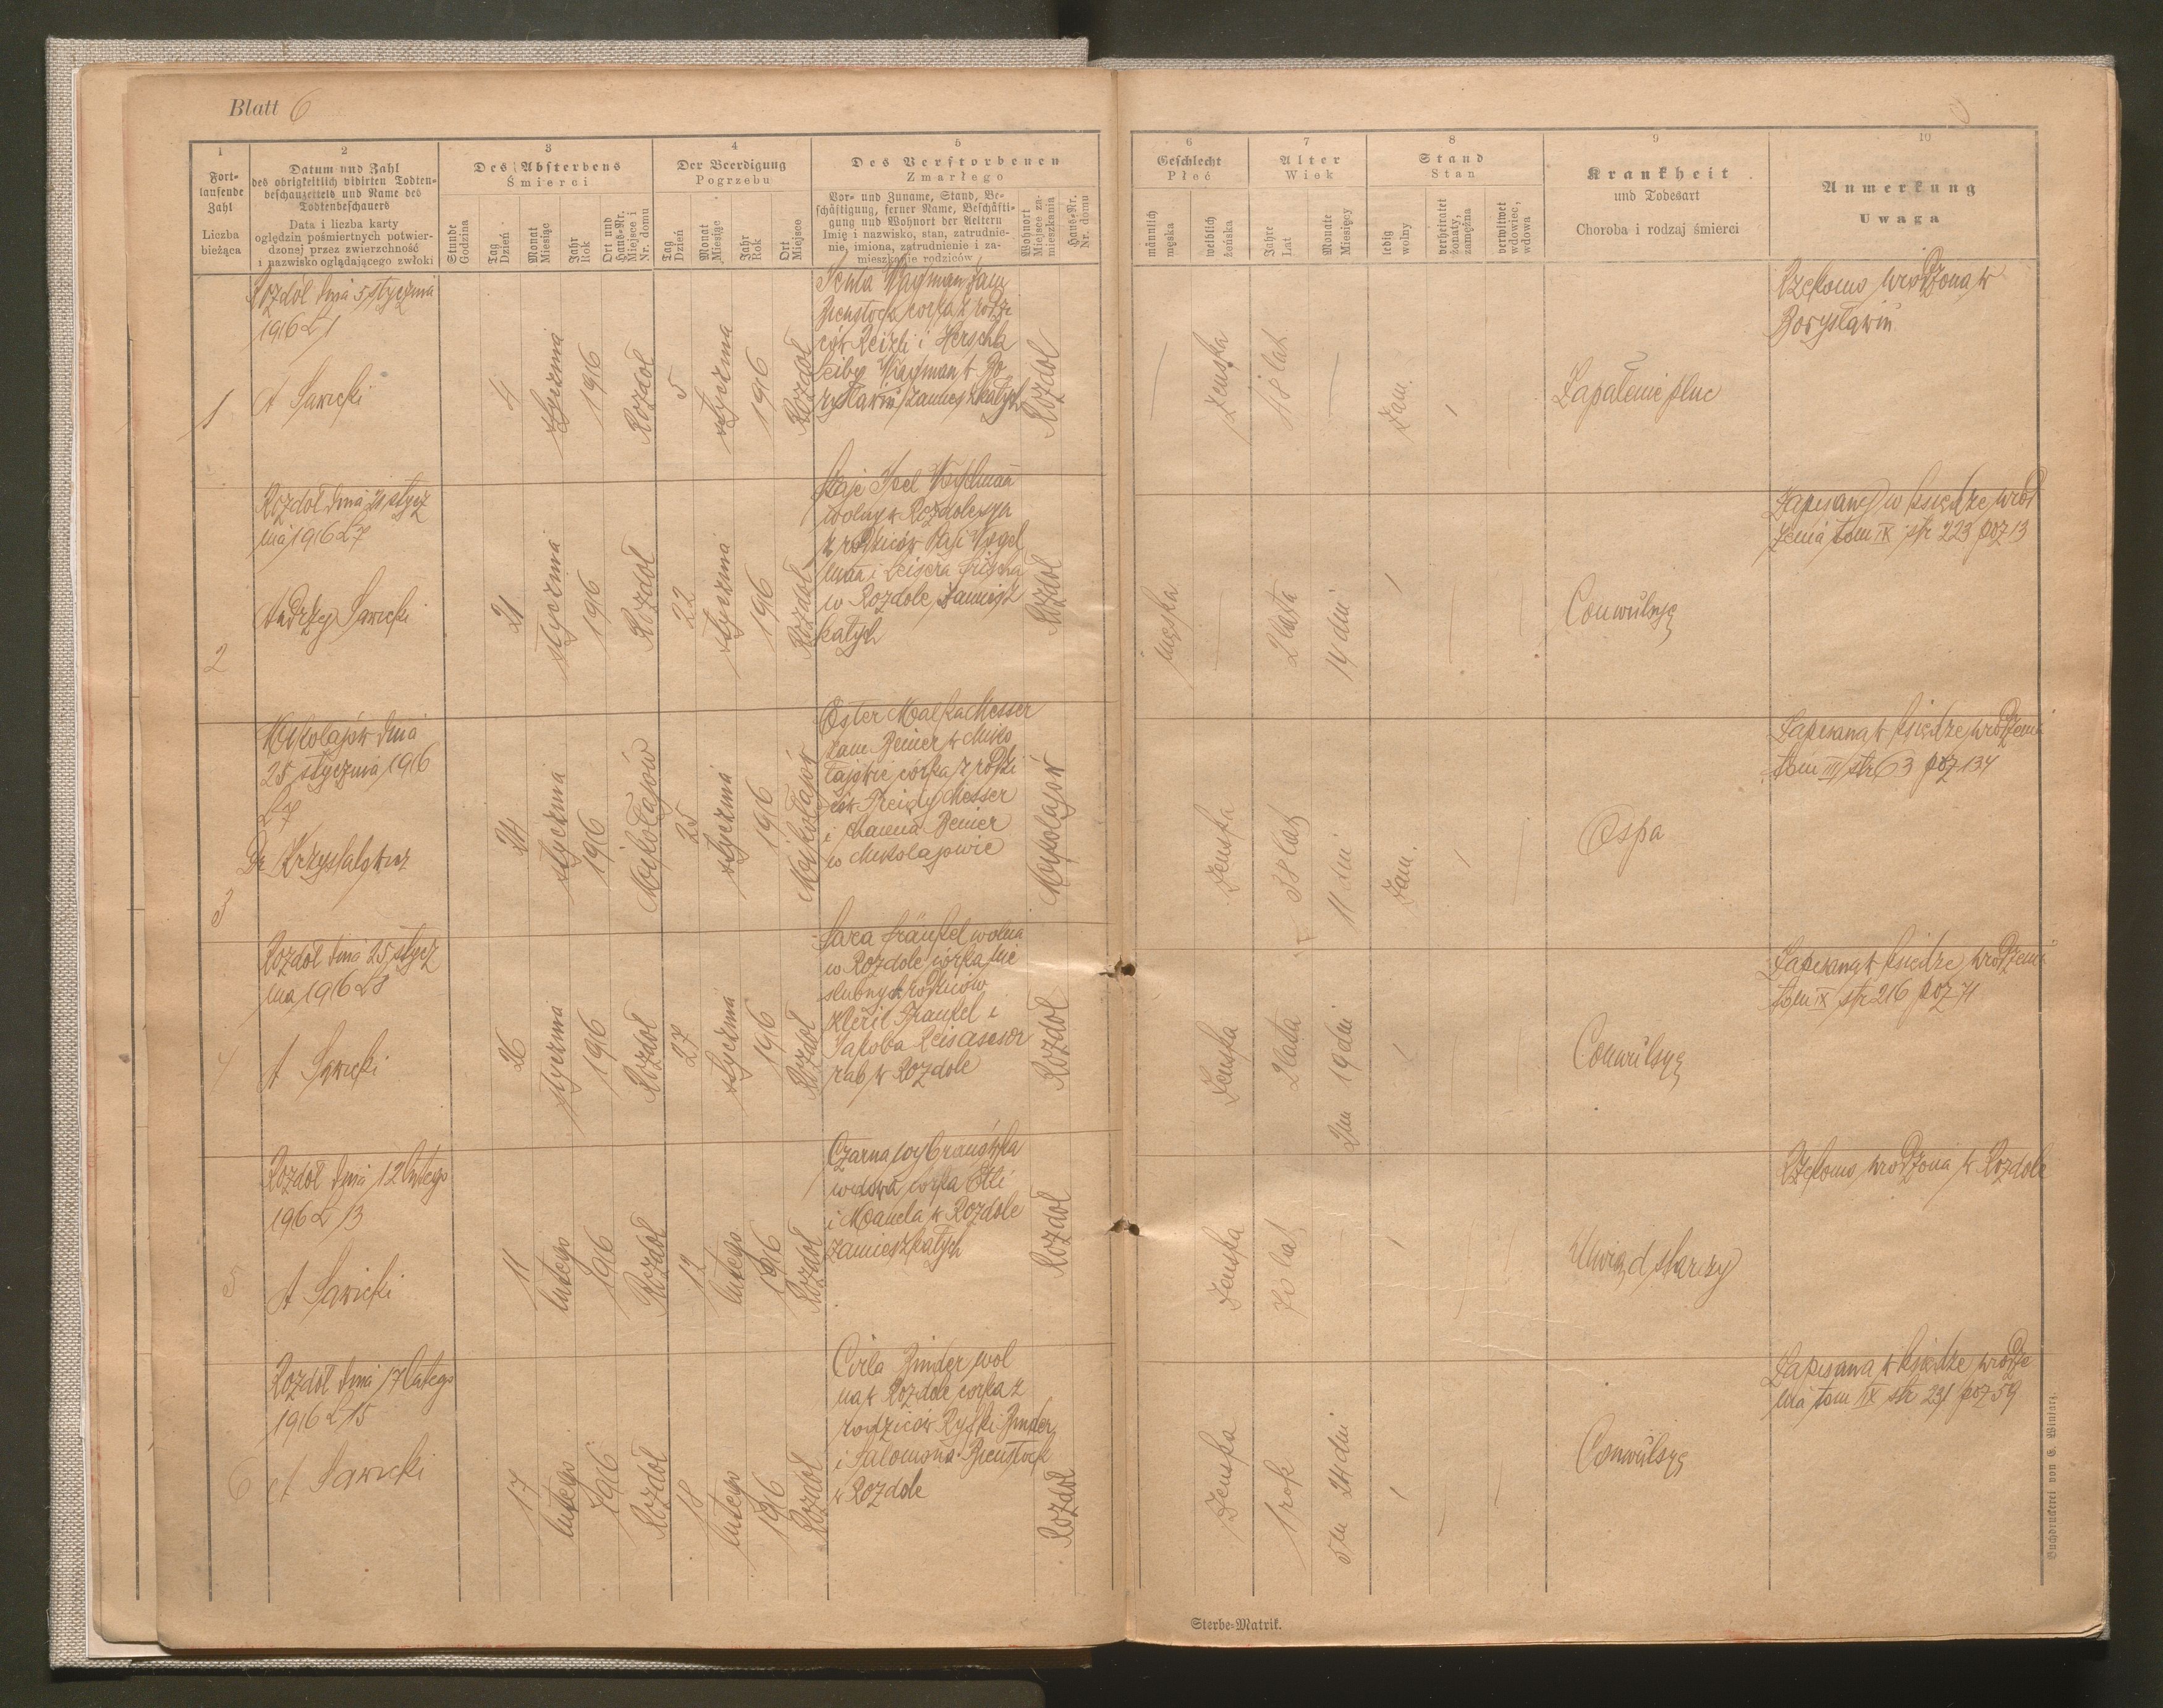 Blatt 6
6
1
Fort-
laufende
Zahl
Liczba
bieżąca
2
Datum und Zahl
des obrigkeitlich vidirten Todten-
beschauzettels und Name des
Todtenbeschauers
Data i liczba karty
oględzin pośmiertnych potwier-
dzonej przez zwierzchność
i nazwisko oglądającego zwłoki
3
Des Absterbens
Śmierci
Stunde
Godzina
Tag
Dzień
Monat
Miesiąc
Jahr
Rok
Ort und
Haus-Nr.
Miejsce i
Nr. domu
4
Der Beerdigung
Pogrzebu
Tag
Dzień
Monat
Miesiąc
Jahr
Rok
Ort
Miejsce
5
Des Verstorbenen
Zmarłego
Vor- und Zuname, Stand, Be-
schäftigung, ferner Name, Beschäfti-
gung und Wohnort der Aeltern
Imię i nazwisko, stan, zatrudnie-
nie, imiona, zatrudnienie i za-
mieszkanie rodziców
Wohnort
Miejsce za-
mieszkania
Haus-Nr.
Nr. domu
6
Geschlecht
Płeć
männlich
męska
weiblich
żeńska
7
Alter
Wiek
Jahre
Lat
Monate
Miesięcy
8
Stand
Stan
ledig
wolny
verheiratet
żonaty,
zamężna
verwitwet
wdowiec,
wdowa
9
Krankheit
und Todesart
Choroba i rodzaj śmierci
10
Anmerkung
Uwaga
1
Rozdół dnia 5 stycznia
1916 L 1
A Sawicki
4
stycznia
1916
Rozdół
5
stycznia
1916
Rozdół
zam
córka z rodzi
ców Reizli i Herscha
Leiby w Bo
rysławiu zamieszkałych
Rozdół
żeńska
48 lat
Zam.
Zapalenie płuc
Rzekomo urodzona w
Borysławiu
2
Rozdół dnia 21 stycz
nia 1916 L 7
Andrzej Sawicki
21
stycznia
1916
Rozdół
22
stycznia
1916
Rozdół
wolny w Rozdole syn
z rodziców
i Leisera
w Rozdole zamiesz
kałych
Rozdół
męska
2 lata
14 dni
Conwulsye
Zapisany w księdze uro
dzenia tom IX str 223 poz 13
3
Mikołajów dnia
25 stycznia 1916
L 7
Dr
24
stycznia
1916
Mikołajów
25
stycznia
1916
Mikołajów
Ester Malka Messer
zam Beiner w Miko
łajowie córka z rodzi
ców Freidy Messer
i Beiner
w Mikołajowie
Mikołajów
żeńska
38 lat
11 dni
Zam.
Ospa
Zapisana w księdze urodzenia
tom III str 63 poz 134
4
Rozdół dnia 25 stycz
nia 1916 L 8
A Sawicki
26
stycznia
1916
Rozdół
27
stycznia
1916
Rozdół
Sara Fränkel wolna
w Rozdole córka nie
ślubnych rodziców
Fränkel i
Jakóba Reis asesor
rab w Rozdole
Rozdół
żeńska
2 lata
2m 19 dni
Conwulsye
Zapisana w księdze urodzenia
tom IX str 216 poz 71
5
Rozdół dnia 12 lutego
1916 L 13
A Sawicki
11
lutego
1916
Rozdół
12
lutego
1916
Rozdół
Czarna
wdowa córka Etli
i Manela w Rozdole
zamieszkałych
Rozdół
żeńska
70 lat
Uwiąd starczy
Rzekomo urodzona w Rozdole
6
Rozdół dnia 17 lutego
1916 L 15
A Sawicki
17
lutego
1916
Rozdół
18
lutego
1916
Rozdół
Cirla Binder wol
na w Rozdole córka z
rodziców Ryfki Binder
i Salomona Bienstock
w Rozdole
Rozdół
żeńska
1 rok
5m 24 dni
Conwulsye
Zapisana w księdze urodze
nia tom IX str 231 poz 59
Sterbe-Matrik.
Buchdruckerei von E. Winiarz.